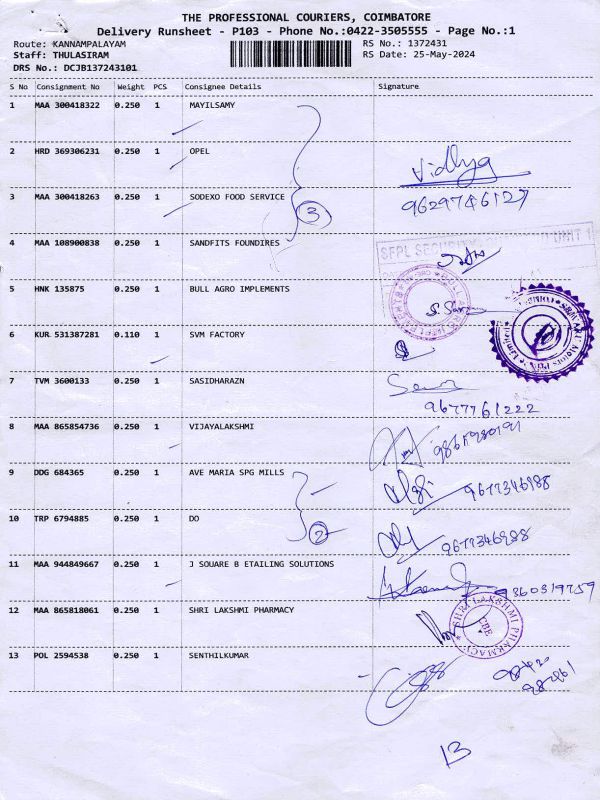 THE PROFESSIONAL COURIERS, COIMBATORE
Delivery Runsheet - P103 - Phone No.:0422-3505555 - Page No.:1
Route: KANNAMPALAYAM RS No.: 1372431
Staff: THULASIRAM RS Date: 25-May-2024
DRS No.: DCJB137243101
S No Consignment No Weight PCS Consignee Details Signature
1 MAA 300418322 0.250 1 MAYILSAMY
2 HRD 369306231 0.250 1 OPEL
Vidhya
3 MAA 300418263 0.250 1 SODEXO FOOD SERVICE 9629746127
3
4 MAA 108900838 0.250 1 SANDFITS FOUNDIRES
5 HNK 135875 0.250 1 BULL AGRO IMPLEMENTS
6 KUR 531387281 0.110 1 SVM FACTORY
7 TVM 3600133 0.250 1 SASIDHARAZN
9677761222
8 MAA 865854736 0.250 1 VIJAYALAKSHMI
9 DDG 684365 0.250 1 AVE MARIA SPG MILLS
9677346988
10 TRP 6794885 0.250 1 DO
2
9677346988
11 MAA 944849667 0.250 1 J SOUARE B ETAILING SOLUTIONS
9860319759
12 MAA 865818061 0.250 1 SHRI LAKSHMI PHARMACY
SHRI LAKSHMI PHARMACY
CBE
13 POL 2594538 0.250 1 SENTHILKUMAR
13